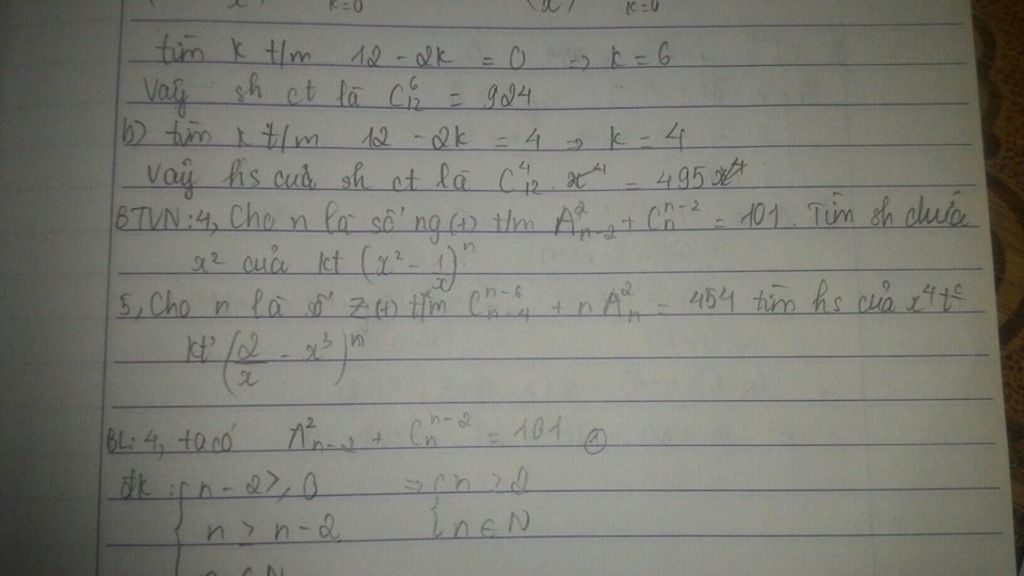 k=0 k=0
tìm k t/m 12 - 2k = 0 => k = 6
Vậy sh ct là C₁₂⁶ = 924
b) tìm k t/m 12 - 2k = 4 => k = 4
Vậy hs của sh ct là C₁₂⁴ . x⁴ = 495 x⁴
BTVN: 4, Cho n là số ng (+) t/m A²ₙ₋₂ + Cₙⁿ⁻² = 101. Tìm sh chứa
x² của kt (x² - 1/x)ⁿ
5, Cho n là số Z(+) t/m Cₙ₋₄ⁿ⁻⁶ + n Aₙ² = 454 tìm hs của x⁴ t^c
kt (2/x - x³)ⁿ
BL: 4, ta có A²ₙ₋₂ + Cₙⁿ⁻² = 101 ①
đk : { n - 2 ≥ 0 => { n ≥ 2
n > n - 2 { n ∈ N